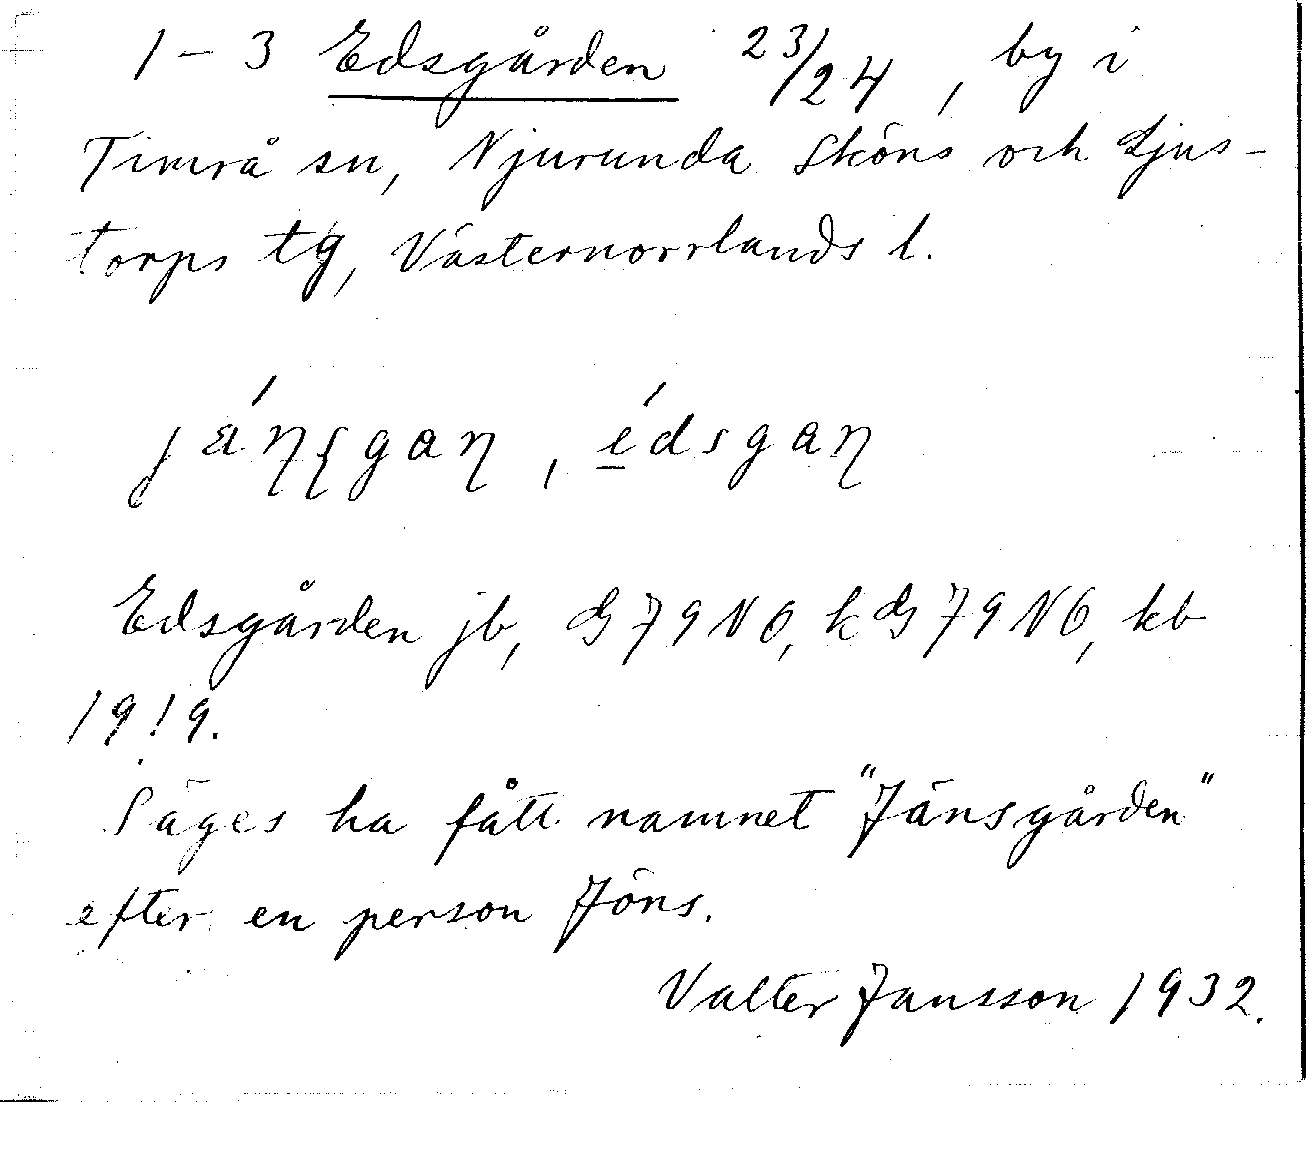 1-3 Edsgården 23/24, by i
Timrå sn, Njurunda Sköns och Ljus-
torps tg, Västernorrlands l.
jä́ɳʂgaɳ, édsgaɳ
Edsgården jb, G 79 NO, kG 79 NO, kb
1919.
Säges ha fått namnet "Jänsgården"
efter en person Jöns.
Valter Jansson 1932.